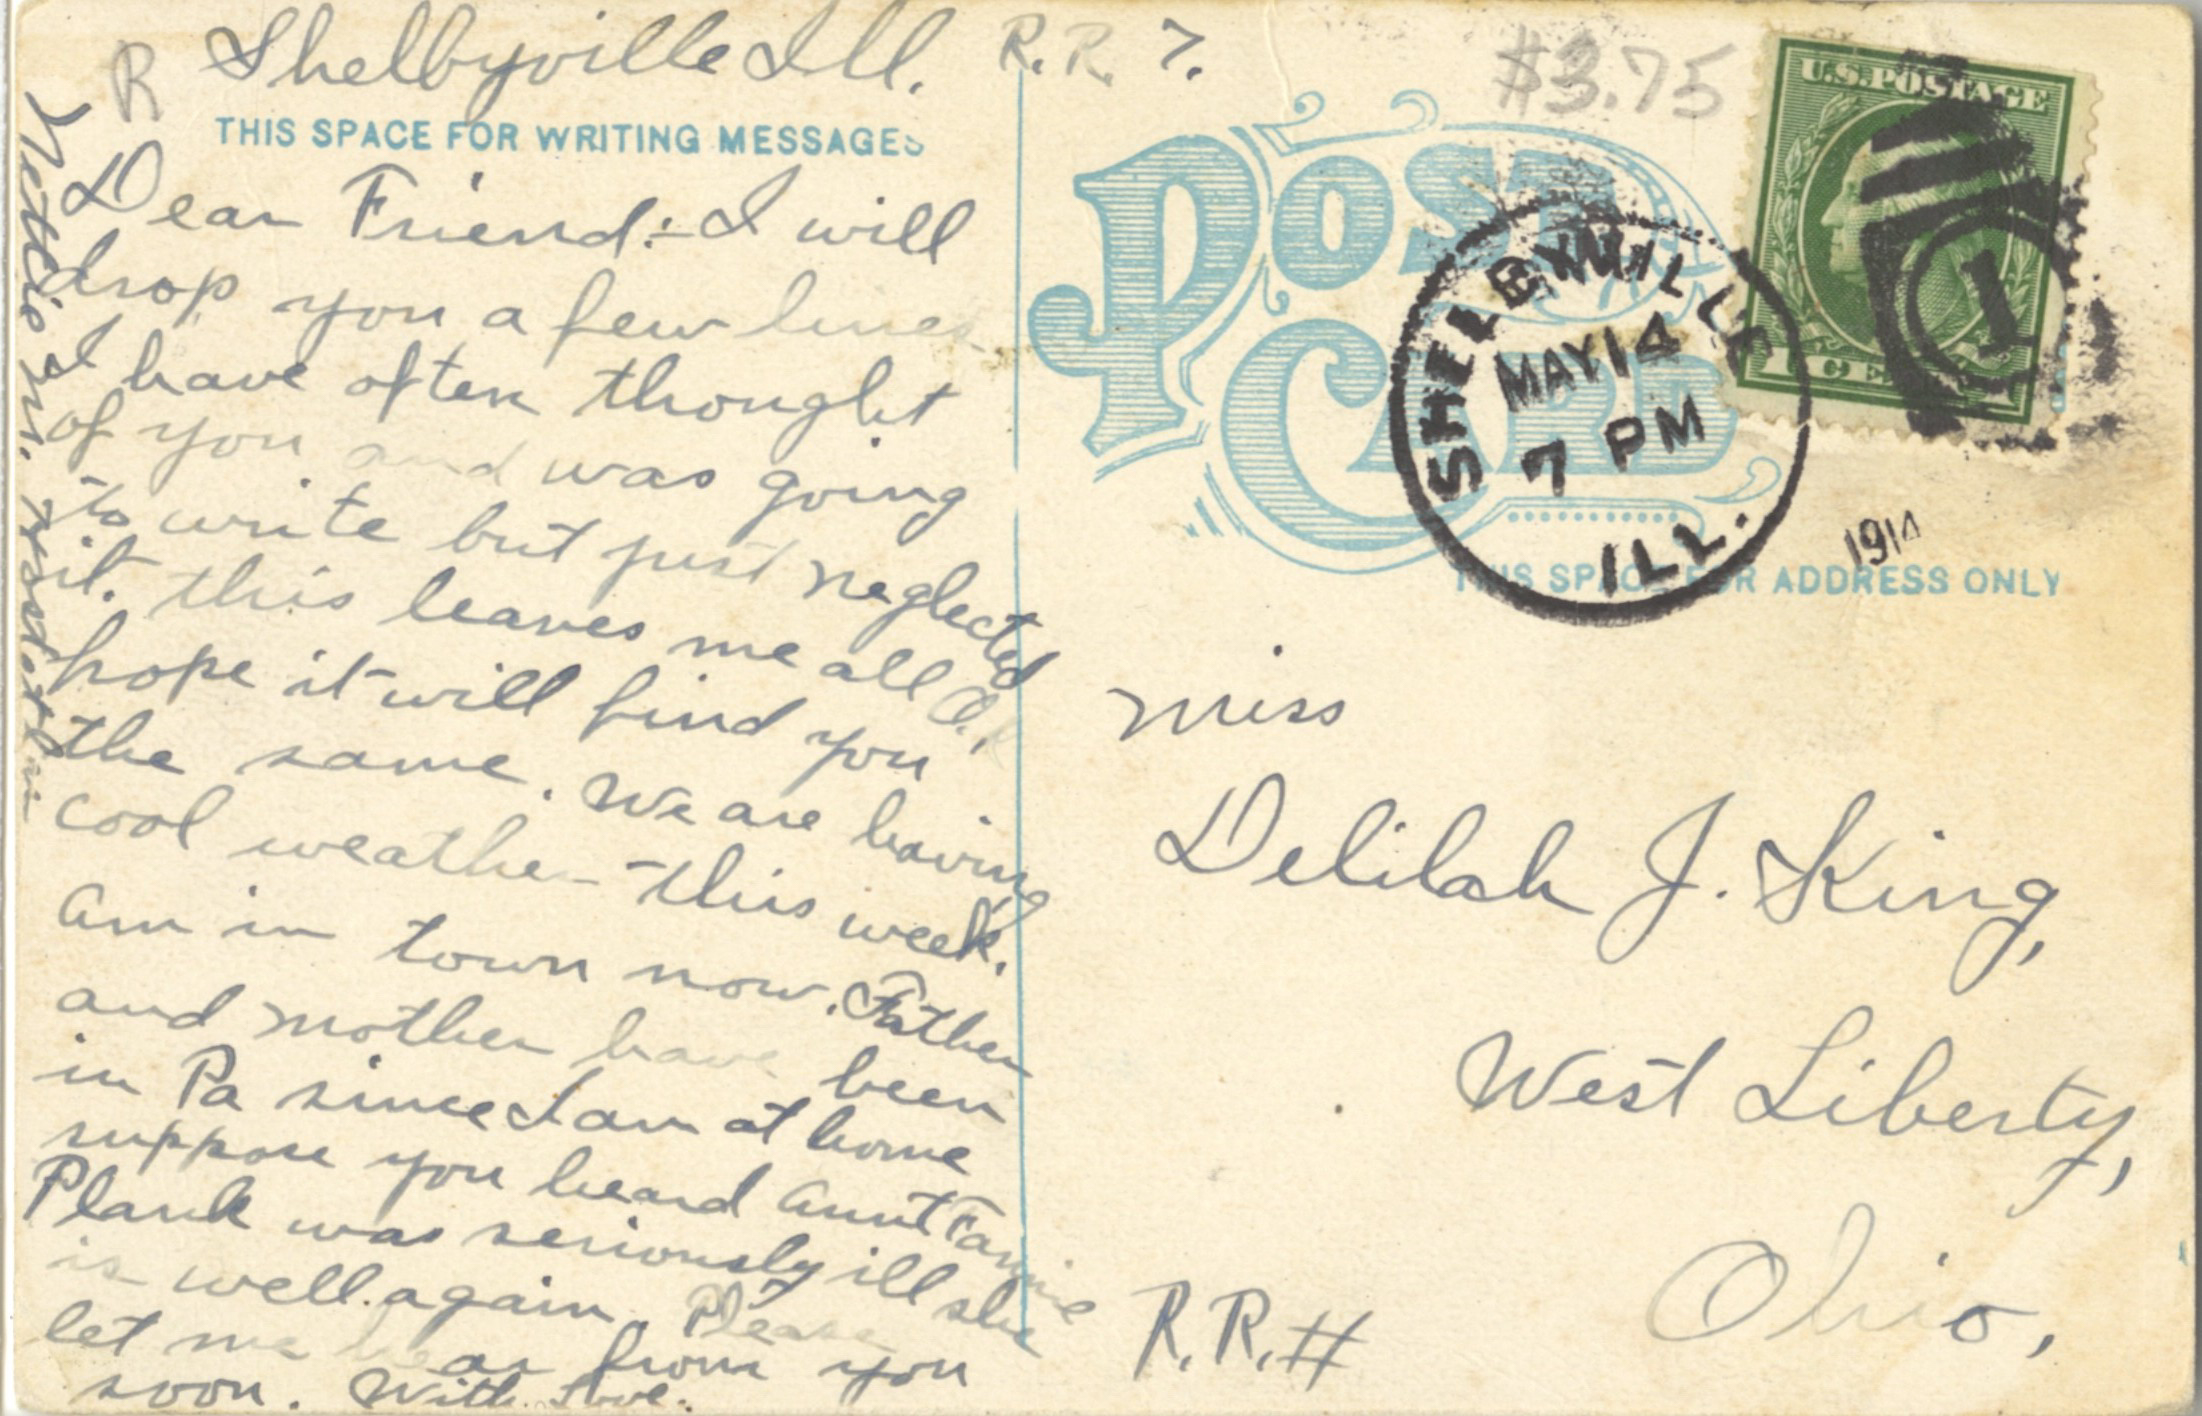 R Shelbyville Ill. R.R. 7.
THIS SPACE FOR WRITING MESSAGES
Dear Friend:- I will
drop you a few lines
I have often thought
of you and was going
to write but just neglected
it. This leaves me all O.K
hope it will find you
the same. We are having
cool weather this week.
am in town now. Father
and mother have been
in Pa since I am at home
suppose you heard Aunt Fannie
Plank was seriously ill she
is well again. Please
let me hear from you
soon. With Love.
Nettie M.
$3.75
U.S. POSTAGE
1 CE
1
POST CARD
SHELBYVILLE
MAY 14
7 PM
ILL.
1914
THIS SPACE FOR ADDRESS ONLY
Miss
Delilah J. King,
West Liberty,
Ohio,
R.R.#